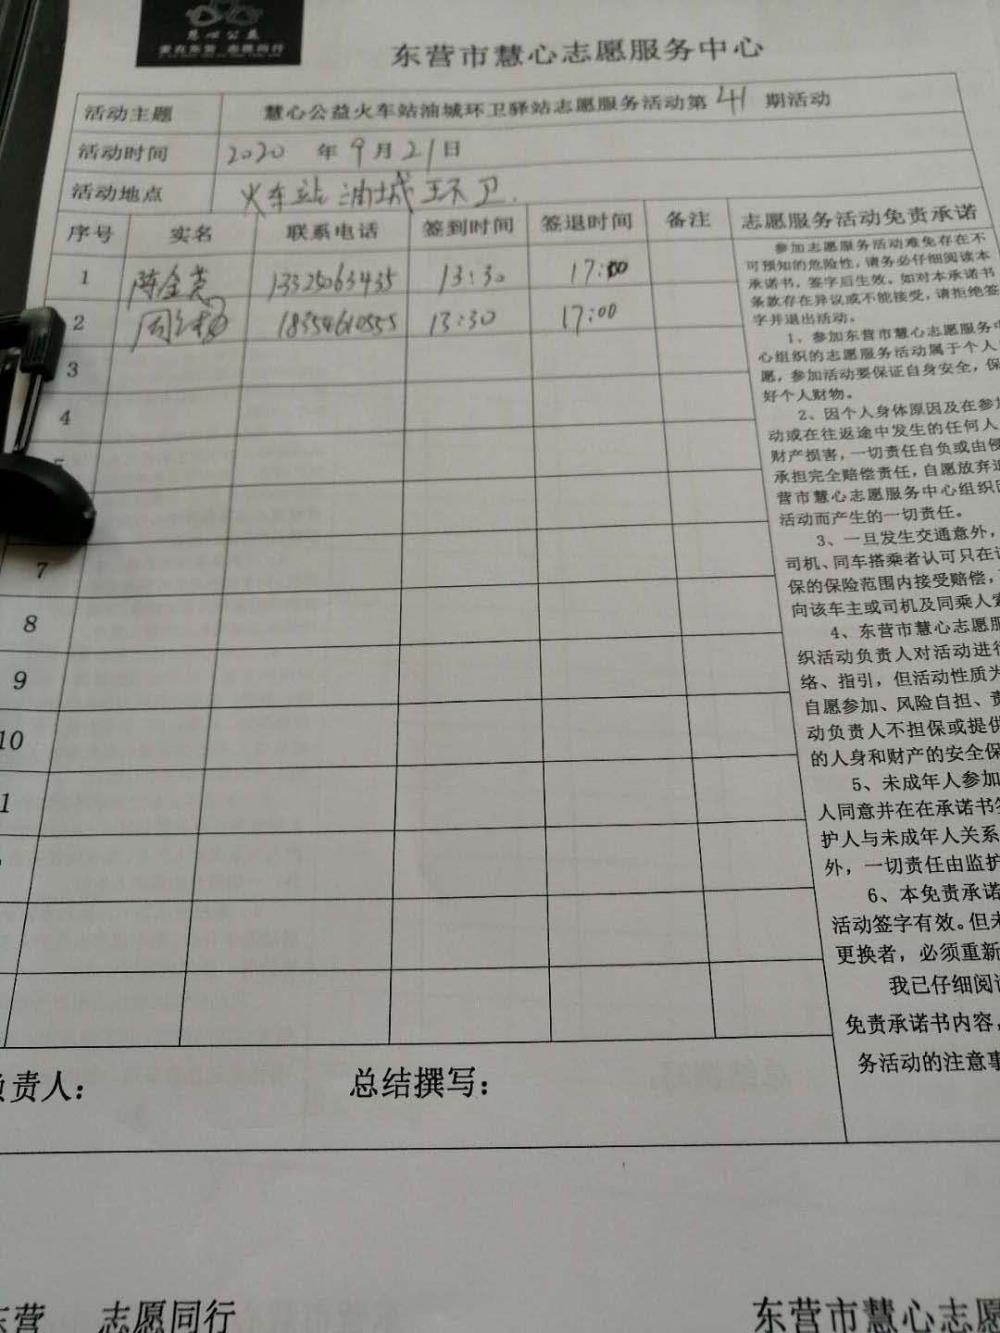 慧心公益
爱在东营 志愿同行
东营市慧心志愿服务中心
活动主题 慧心公益火车站油城环卫驿站志愿服务活动第41期活动
活动时间 2020 年 9 月 21 日
活动地点 火车站油城环卫.
序号 实名 联系电话 签到时间 签退时间 备注
1 陈金英 13325063435 13:30 17:00
2 18354610555 13:30 17:00
3
4
7
8
9
10
1
志愿服务活动免责承诺
参加志愿服务活动难免存在不
可预知的危险性，请务必仔细阅读本
承诺书，签字后生效。如对本承诺书
条款存在异议或不能接受，请拒绝签
字并退出活动。
1、参加东营市慧心志愿服务中
心组织的志愿服务活动属于个人
愿，参加活动要保证自身安全，保
好个人财物。
2、因个人身体原因及在参加
动或在往返途中发生的任何人
财产损害，一切责任自负或由侵
承担完全赔偿责任，自愿放弃追
营市慧心志愿服务中心组织
活动而产生的一切责任。
3、一旦发生交通意外，
司机、同车搭乘者认可只在
保的保险范围内接受赔偿，
向该车主或司机及同乘人索
4、东营市慧心志愿服
织活动负责人对活动进行
络、指引，但活动性质为
自愿参加、风险自担、责
动负责人不担保或提供
的人身和财产的安全保
5、未成年人参加
人同意并在在承诺书签
护人与未成年人关系
外，一切责任由监护
6、本免责承诺
活动签字有效。但未
更换者，必须重新
我已仔细阅读
免责承诺书内容，
务活动的注意事
负责人： 总结撰写：
东营 志愿同行 东营市慧心志愿